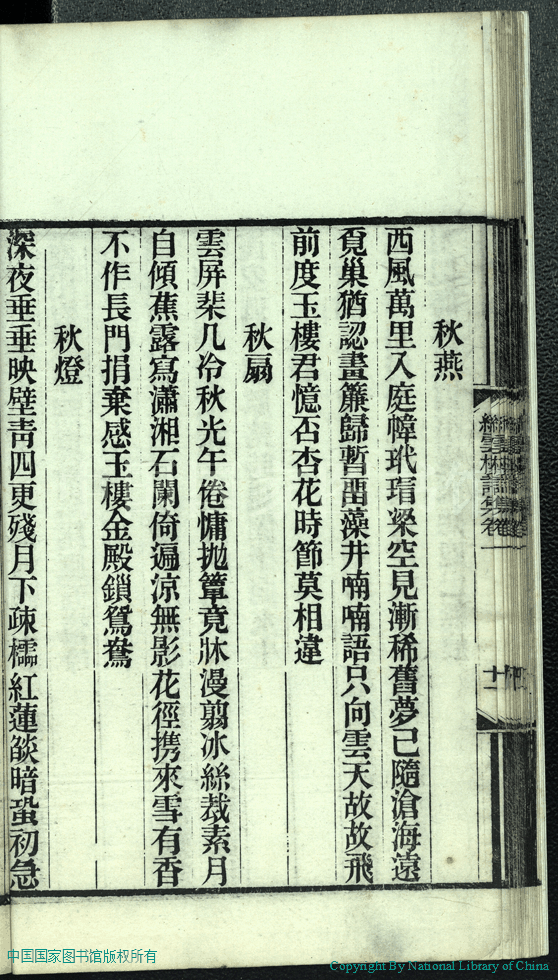 秋燕
西風萬里入庭幃玳瑁梁空見漸稀舊夢已隨滄海遠
覓巢猶認畫簾歸暫留藻井喃喃語只向雲天故故飛
前度玉樓君憶否杏花時節莫相違
秋扇
雲屏棐几冷秋光午倦慵拋簟竟牀漫翦冰絲裁素月
自傾蕉露寫瀟湘石闌倚遍涼無影花徑携來雪有香
不作長門捐棄感玉樓金殿鎖鴛鴦
秋燈
深夜垂垂映壁靑四更殘月下疎櫺紅蓮燄暗蛩初急
中国国家图书馆版权所有
Copyright By National Library of China